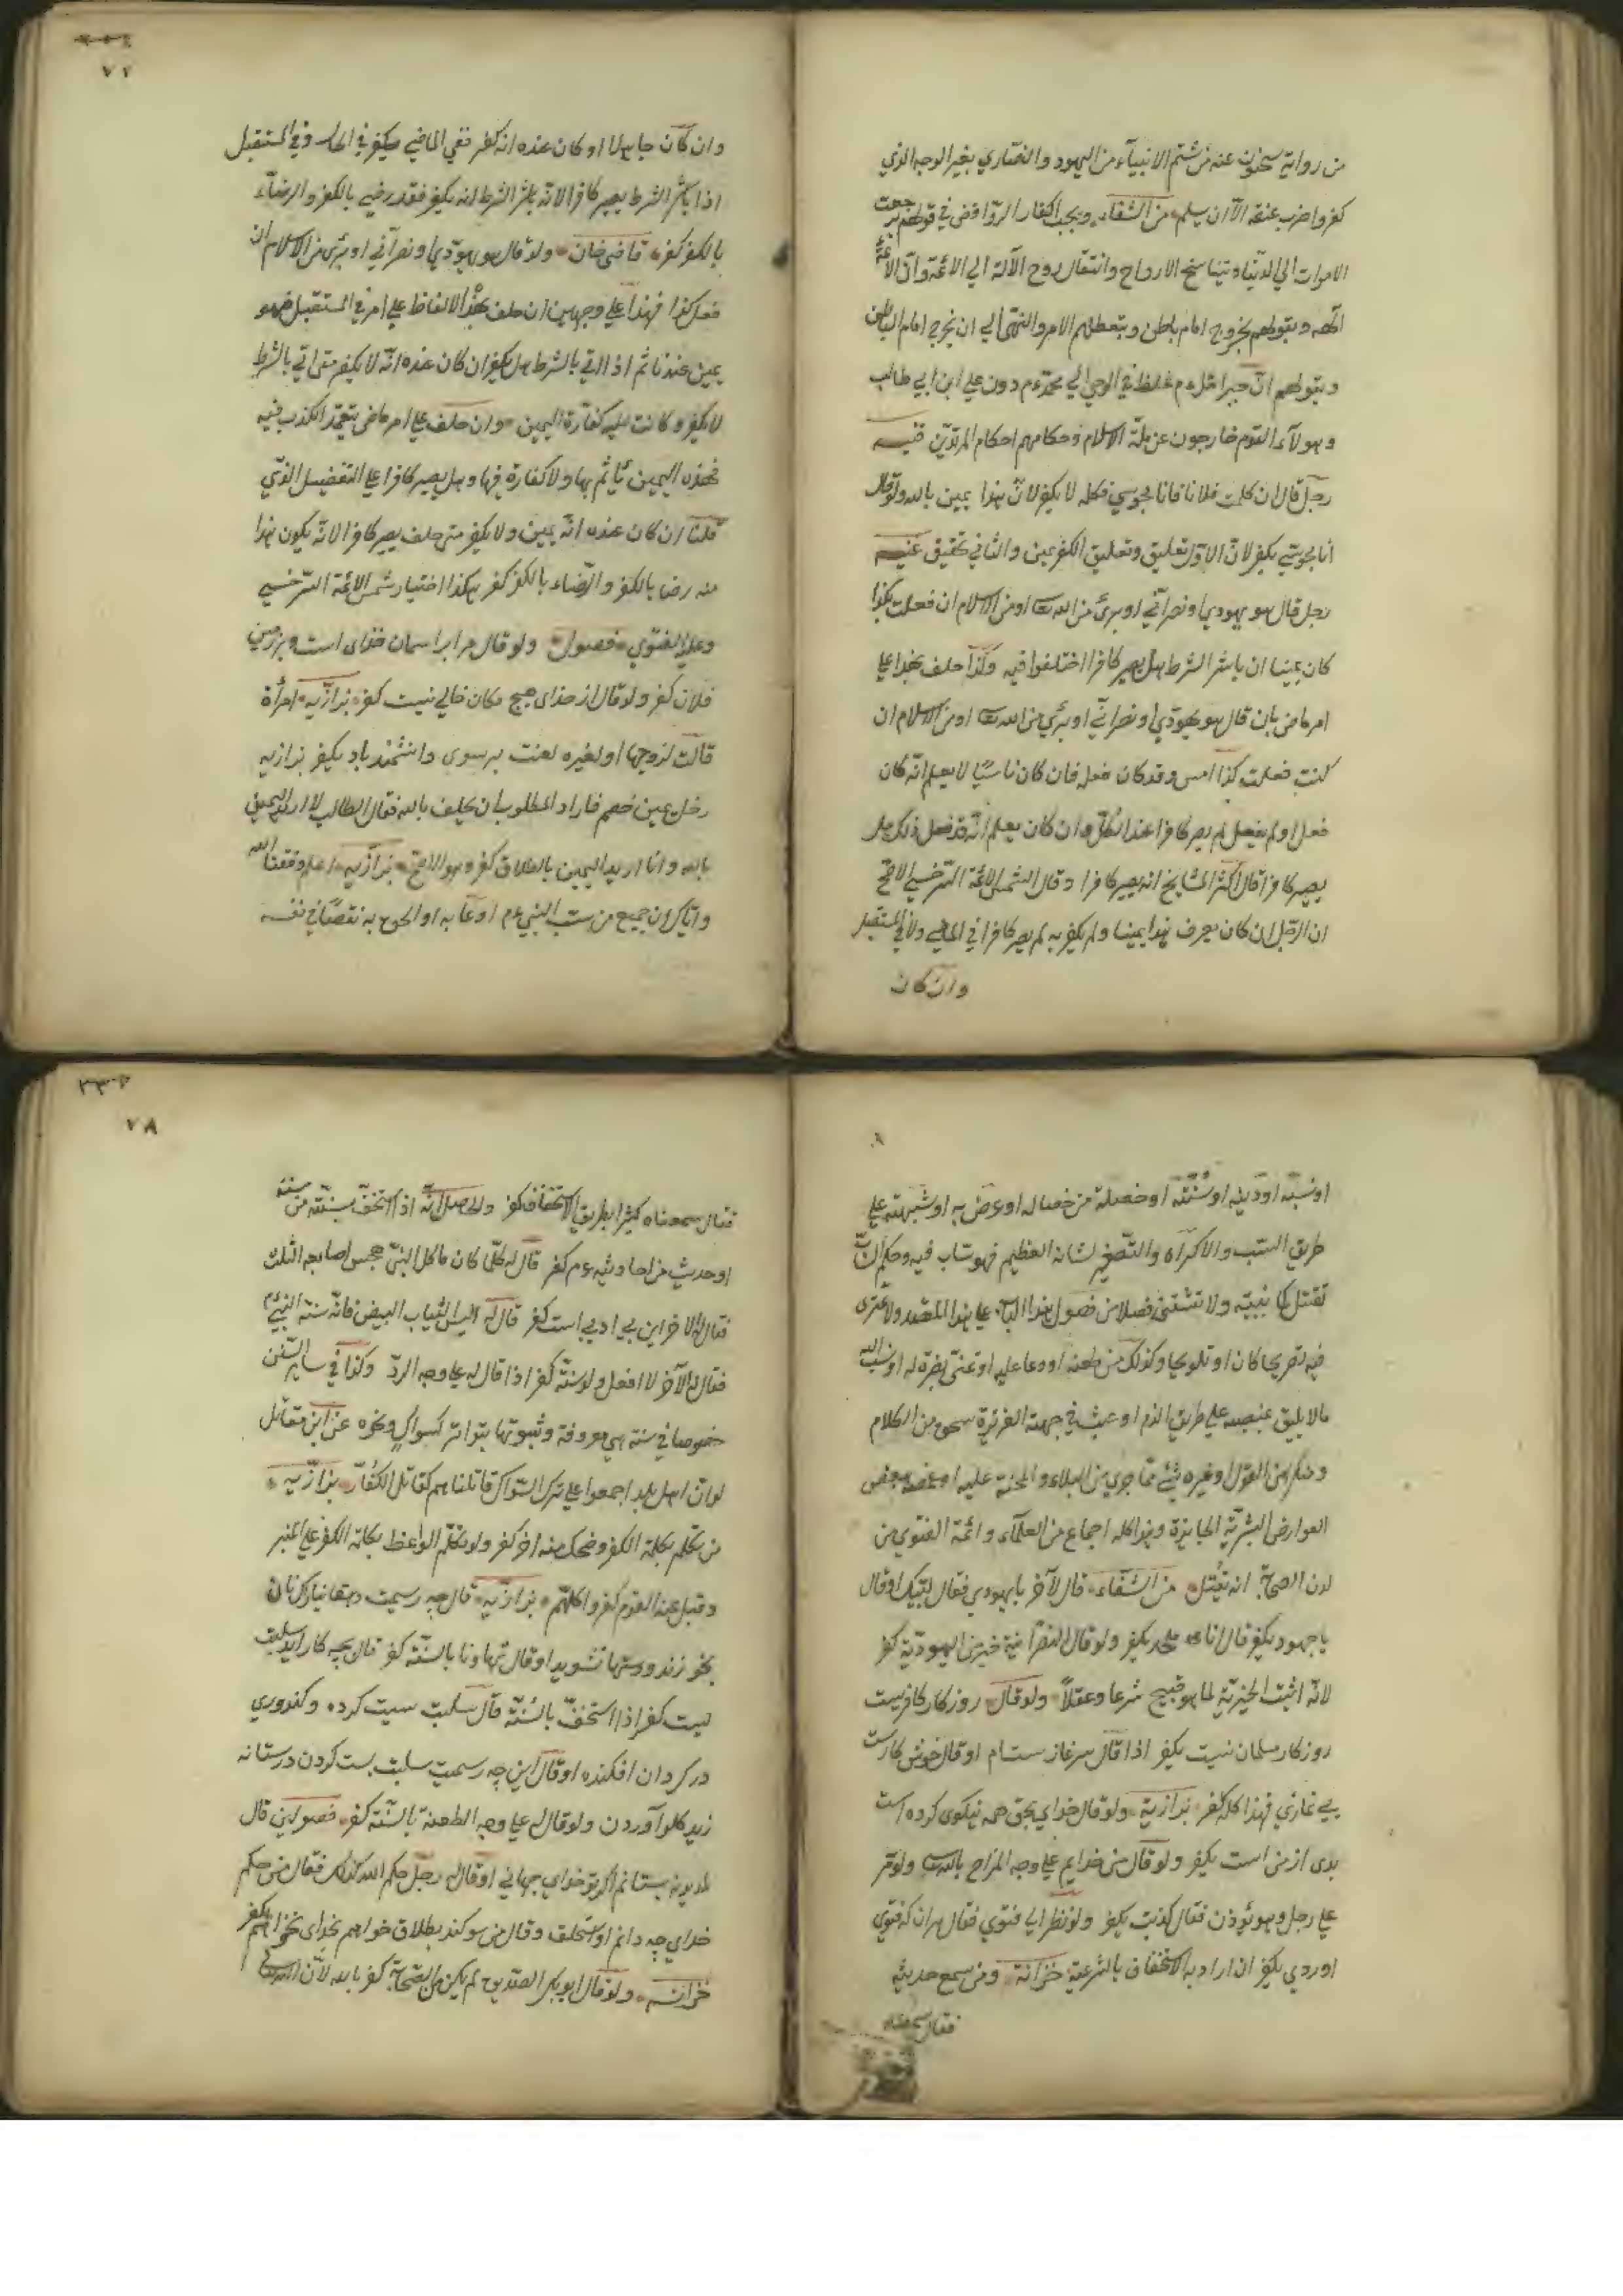 من رواية سحنون عنه من شتم الانبياء من اليهود والنصاري بغير الوجه الذي
كفروا ضرب عنقه الا ان يسلم من الشفاء ويجب اكفار الروافض في قولهم برجعت
الاموات الي الدنيا وبتناسخ الارواح وانتقال روح الآله الي الائمة وان الائمة
آلهة وبقولهم بخروج امام باطن وبتعطلهم الامر والنهي الي ان يخرج امام الباطن
وبقولهم ان جبرائل عم غلط في الوحي الي محمد عم دون علي ابن ابي طالب
وهولآء القوم خارجون عن ملة الاسلام وحكامهم احكام المرتدين قنيه
رجل قال ان كلمت فلانا فانا مجوسي فكلمه لا يكفر لان هذا يمين بالله ولو قال
انا مجوسي يكفر لان الاول تعليق وتعليق الكفر يمين والثاني تحقيق
رجل قال هو يهودي او نصراني او بري من الله تعا او من الاسلام ان فعلت كذا
كان يمينا ان باشر الشرط هل يصير كافرا اختلفوا فيه وكذا حلف بهذا علي
امر ماض بان قال هو يهودي او نصراني او بري من الله تعا او من الاسلام ان
كنت فعلت كذا امس وقد كان فعله فان كان ناسيا لا يعلم انه كان
فعل او لم يفعل لم يصر كافرا عند الكل وان كان يعلم انه قد فعل ذلك هل
يصير كافرا قال اكثر المشايخ انه يصير كافرا وقال الشمس الائمة السرخسي الاصح
ان الرجل ان كان يعرف هذا يمينا ولم يكفر به لم يصر كافرا في الماضي ولا في المستقبل
وان كان
٧٢
وان كان جاهلا او كان عنده انه كفر ففي الماضي يكفر في الحال وفي المستقبل
اذا باشر الشرط يصير كافرا لانه باشر الشرط انه يكفر فقد رضي بالكفر والرضاء
بالكفر كفر قاضي خان ولو قال هو يهودي او نصراني او بري من الاسلام ان
فعل كذا فهذا علي وجهين ان حلف بهذا الالفاظ علي امر في المستقبل فهو
يمين عندنا ثم اذا اتي بالشرط هل يكفر ان كان عنده انه لا يكفر متى اتي بالشرط
لا يكفر وكانت عليه كفارة اليمين وان حلف علي امر ماض بتعمد الكذب فيه
فهذه اليمين يأثم بها ولا كفارة فيها وهل يصير كافرا علي التفضيل الذي
قلنا ان كان عنده انه يمين ولا يكفر متى حلف يصير كافرا لانه يكون هذا
منه رضا بالكفر والرضاء بالكفر كفر هكذا اختيار شمس الائمة السرخسي
وعليه الفتوي فصول ولو قال مرا بر اسمان خداى است وبر زمين
فلان كفر ولو قال از خداى هيج مكان خالي نيست كفر بزازيه امرأة
قالت لزوجها او لغيره لعنت بر سوى دانشمند باد يكفر بزازيه
رجل يمين خصم فاراد المطلوب ان يحلف بالله فقال الطالب لا اريد اليمين
بالله وانا اريد اليمين بالطلاق كفر وهو الاصح بزازيه اعلم وفقنا الله
واياك ان جميع من سب النبي عم او عابه او الحق به نقصا في نفسه
او نسبه او دينه او سنته او خصلة من خصاله او عرض به او شبهته علي
طريق السب والاكراه والتصغير لشانه العظيم فهو ساب فيه وحكم الساب
نقتل كما نبينه ولا نستثنى فصلا من فصول هذا الباب علي هذا المقصد ولا نمترى
فيه تصريحا كان او تلويحا وكذلك من طعنه او دعا عليه او تمنى بضرة له او نسب اليه
مالا يليق بمنصبه علي طريق الذم او عبث في جهته العزيزة سحو من الكلام
ومنكر من القول او غيره شي مما جري من البلاء والمحنة عليه او بعض
العوارض البشرية الجايزة وهذا كله اجماع من العلماء وائمة الفتوي من
لدن الصحابة انه يقتل من الشفاء قال لآخر يا يهودي فقال لبيك او قال
يا جهود يكفر قال انا ملحد يكفر ولو قال النصرانية خير من اليهودية كفر
لانه اثبت الخيرية لما هو قبيح شرعا وعقلا ولو قال روزكار كافريست
روزكار مسلمان نيست يكفر اذا قال سرغاز ستام او قال خوش كاريست
بي غازي فهذا كله كفر بزازية ولو قال خداي بحق همه نيكوى كرده است
بدى از من است يكفر ولو قال من خدايم علي وجه المزاح بالله ولو مر
علي رجل وهو يؤذن فقال كذبت يكفر ولو نظر الي فتوي فقال بران كه فتوي
اوردي يكفر ان اراد به الاستخفاف بالشريعة خزانة ومن سمع حديثه
فقال سمعناه
٧٨
فقال سمعناه كثيرا بطريق الاستخفاف كفر والحاصل انه اذا استخف بسنة من سننه
او حديث من احاديثه عم كفر قال له كلما كان ما كل النبي اصابعه الثلث
فقال الاخر اين بي ادبي است كفر قال له البس الثياب البيض فانه سنة النبي عم
فقال الآخر لا افعل ولو سنة كفر اذا قال له علي وجه الرد وكذا في ساير السنن
خصوصا في سنة هي معروفة وثبوتها بتواتر كسواك ونحوه عن ابن مقاتل
لو ان اهل بلد اجمعوا علي ترك السواك قاتلنا هم كقاتل الكفار بزازيه
من تكلم بكلمة الكفر وضحك منه اخر كفر ولو تكلم الواعظ بكلمة الكفر علي المنبر
وقبل عند القوم كفر واكلهم بزازيه قال چه رسميت دهقانيا كرنان
بخو زند ودستها نشويد او قال تهاونا بالسنة كفر قال بچه كار ايد سبلت
پست كفر اذا استخف بالسنة قال سبلت پست كرده وكندوري
در كردان افكنده او قال اين چه رسميست سبلت پست كردن دستانه
زير كلو آوردن ولو قال له علي وجه الطعنة بالسنة كفر فصولين قال
لمديونه بستانم اكر تو خداي جهاني او قال له رجل حكم الله كذلك فقال من حكم
خداي چه دانم او استحلف وقال من سوكند بطلاق خواهم بخداى نخواهم يكفر
خزانه ولو قال ابو بكر الصديق لم يكن من الصحابة كفر بالله لان الله تعالي